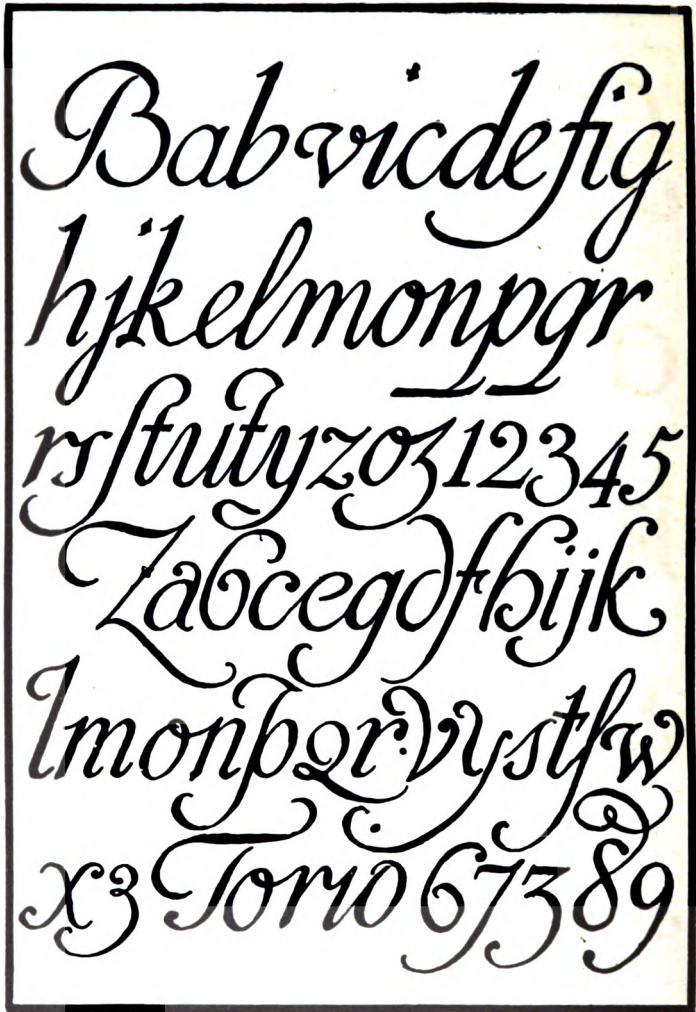 Babvicdefig
hjkelmonpgr
rsſtutyzoz12345
Zabcegdfhijk
lmonpqr.vystſw
xz Torio 67389